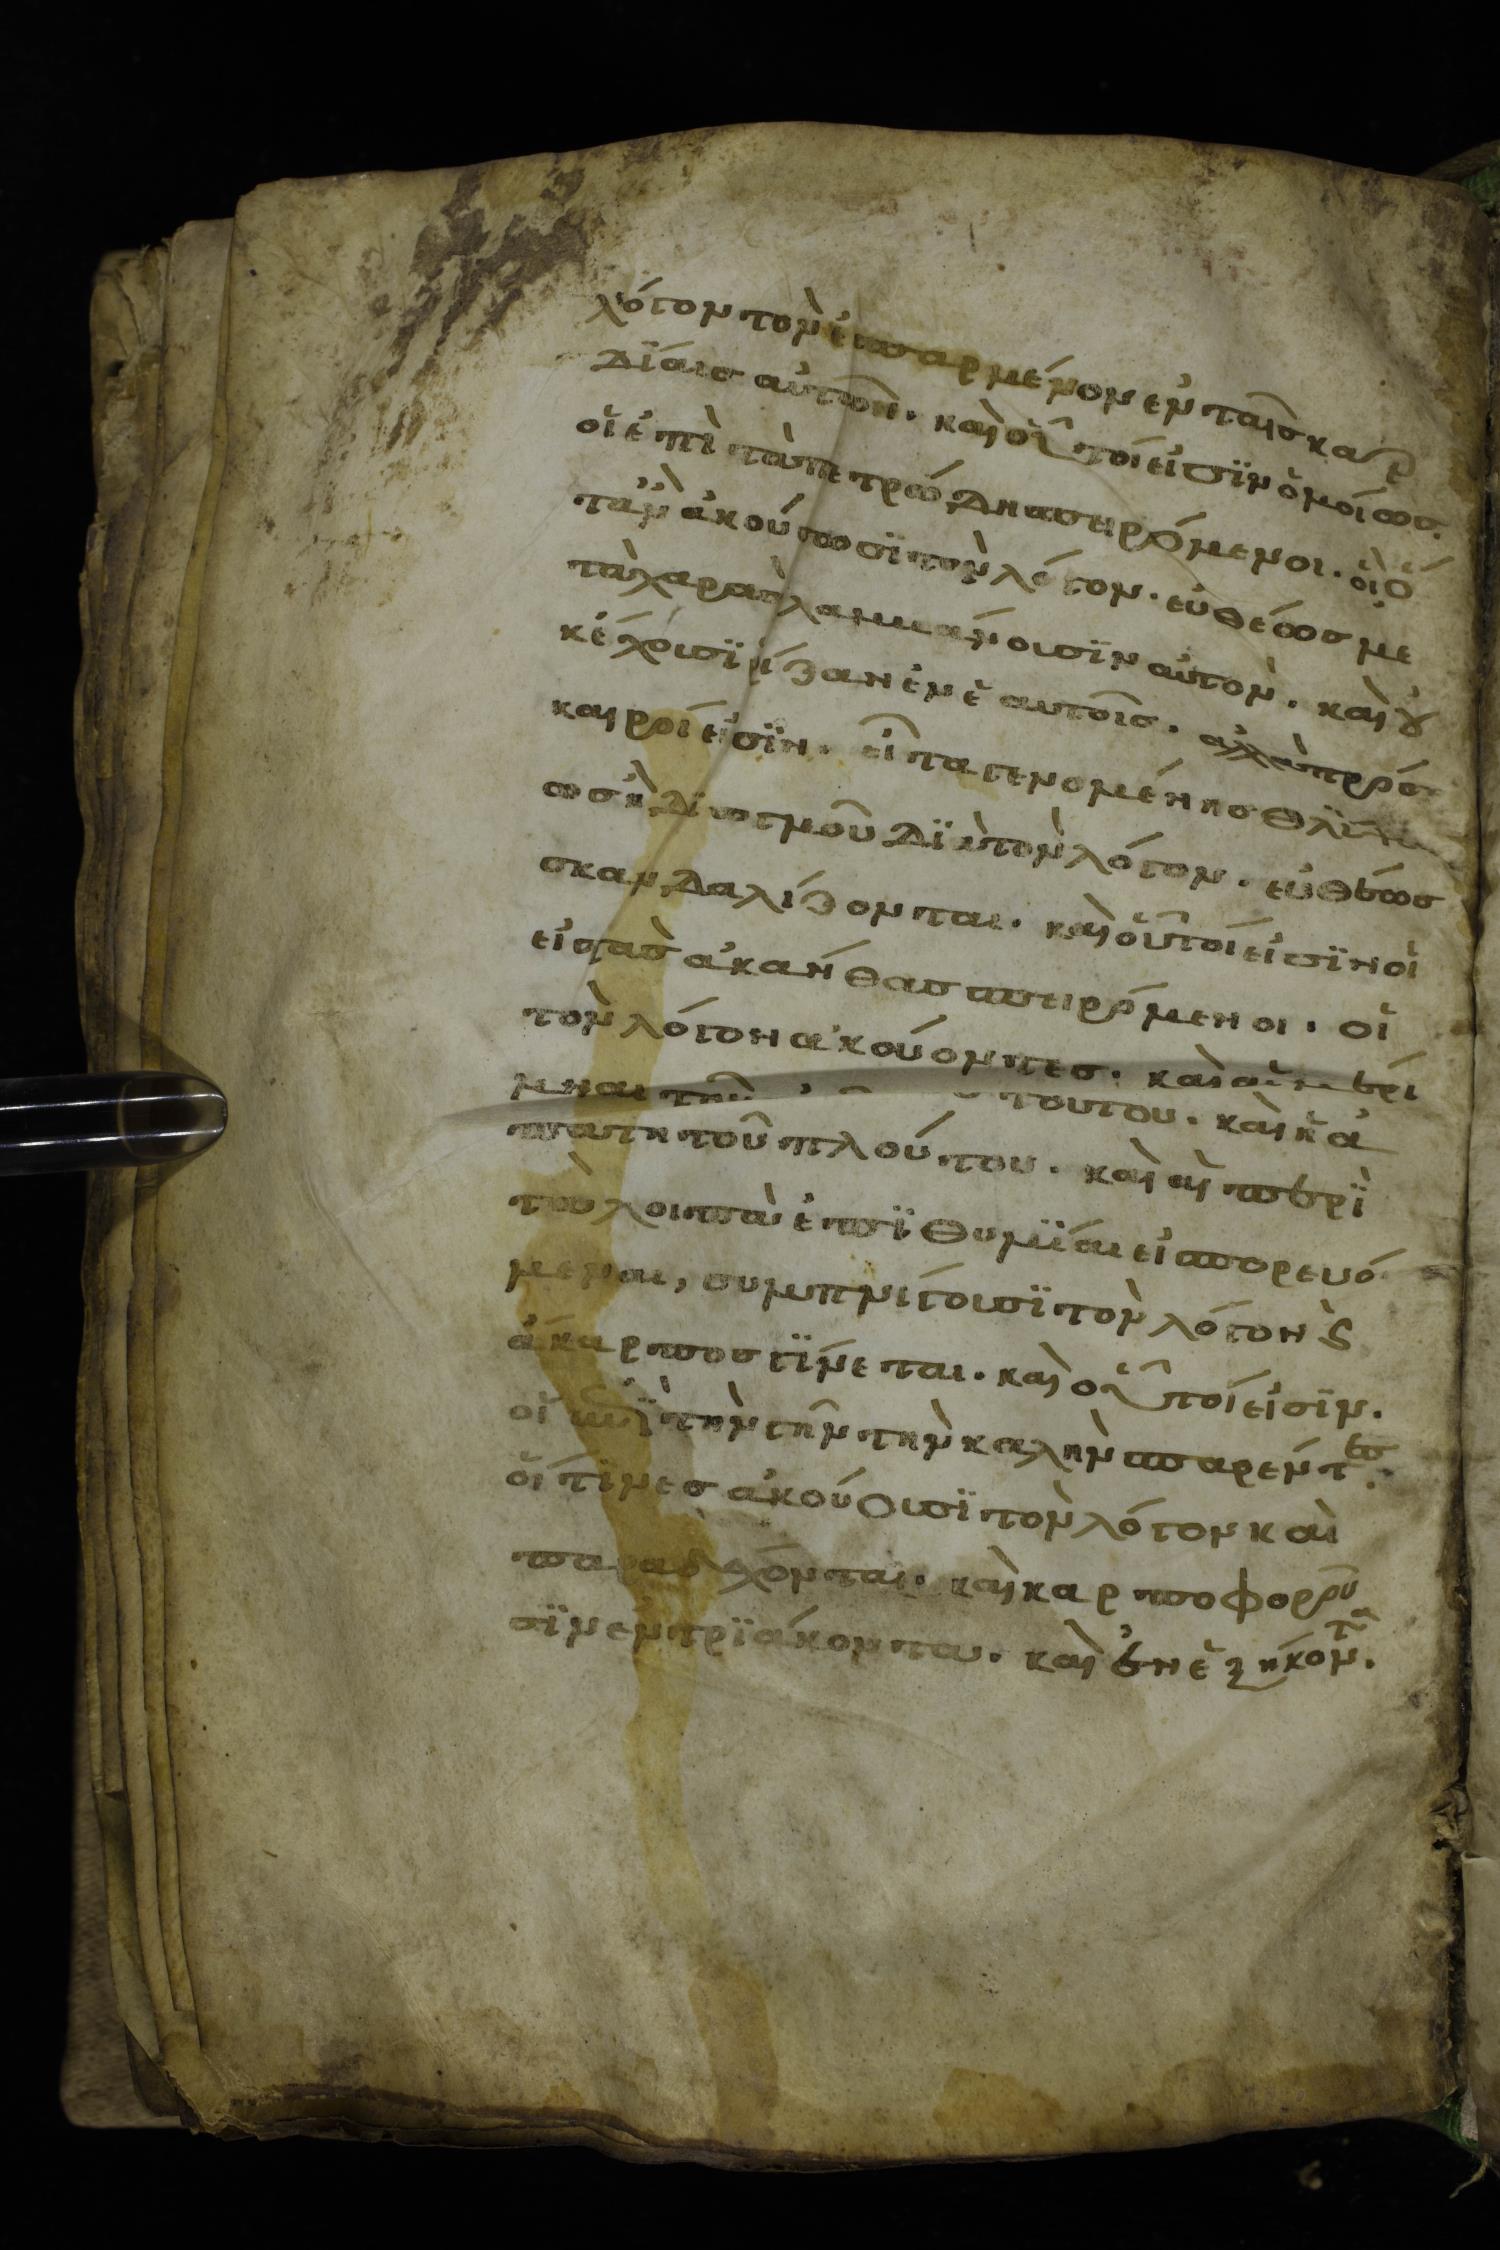 λόγον τὸν ἐσπαρμένον ἐν ταῖς καρ
δΐαις αὐτῶν. καὶ οὗτοί εἰσϊν ὁμοίως
οἱ ἐπὶ τὰ πετρώδη σπειρόμενοι. οἳ ὅ
τὰν ἀκούσωσϊ τὸν λόγον. εὐθέως με
τὰ χαρᾶς λαμβάνουσϊν αὐτὸν. καὶ οὐ
κ ἔχουσϊ ῥίζαν ἐν ἑαυτοῖς. ἀλλὰ πρόσ
καιροί εἰσϊν. εἶτα γενομένης θλίψε
ως ἢ διωγμοῦ δϊὰ τὸν λόγον. εὐθέως
σκανδαλίζονται. καὶ οὗτοί εἰσϊν οἱ
εἰς τὰς ἀκάνθας σπειρόμενοι. οἱ
τὸν λόγον ἀκούοντες. καὶ αἱ μέρι
μναι τοῦ τούτου. καὶ ἡ ἀ
πάτη τοῦ πλούτου. καὶ αἱ περὶ
τὰ λοιπὰ ἐπϊθυμΐαι εἰσπορευό
μεναι, συμπνίγουσϊ τὸν λόγον ϛ
ἄκαρπος γΐνεται. καὶ οὗτοί εἰσϊν.
οἱ ἐπῒ τὴν γῆν τὴν καλὴν σπαρέντες.
οἵτινες ἀκούουσϊ τὸν λόγον καὶ
παραδέχονται. καὶ καρποφοροῦ
σϊν ἐν τρϊάκοντα. καὶ ἐν ἑξήκοντα.